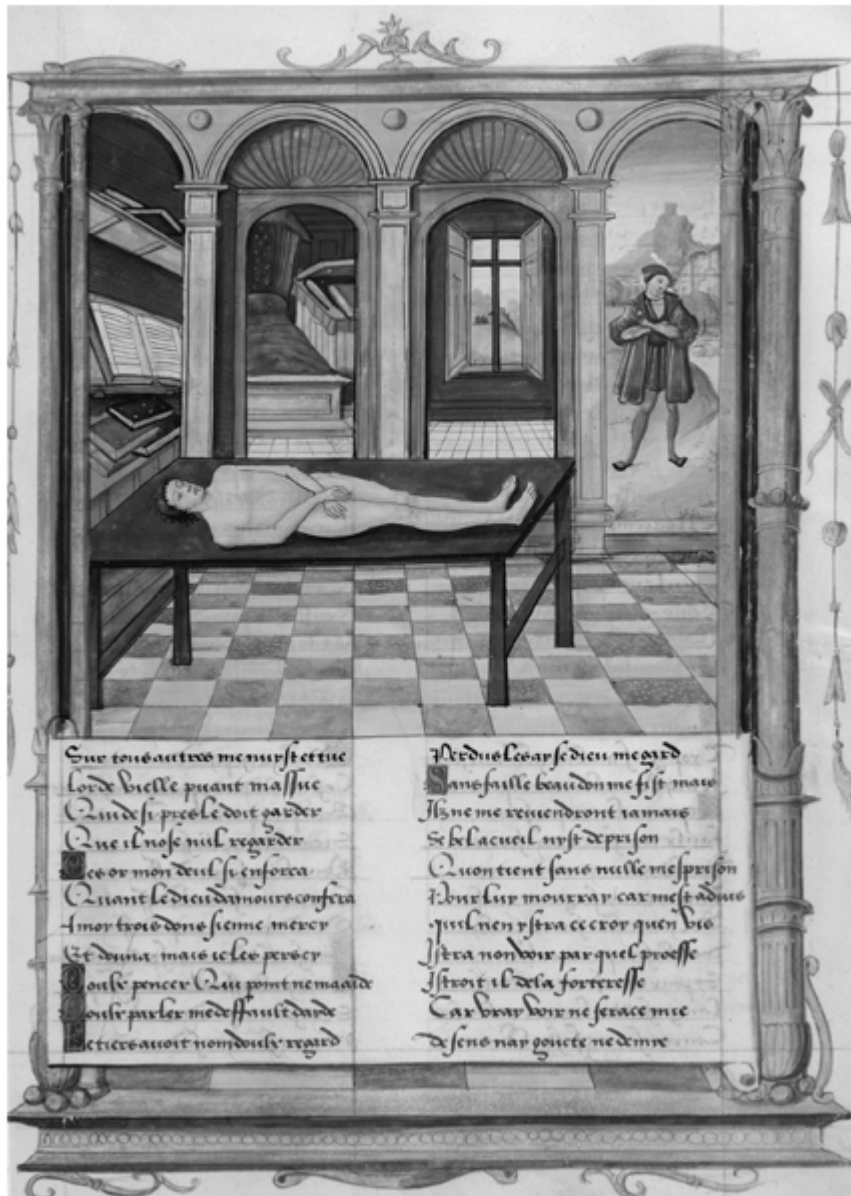 Sur tous autres me nuyst et tue
Lorde vielle puant massue
Qui de si pres le doit garder
Que il nose nul regarder
Des or mon deul si enforca
Quant le dieu damours confera
A moy trois dons sienne mercy
Et donna mais ie les pers cy
Doulx pencer Qui point ne maaide
Doulx parler me deffault daide
Le tiers auoit nom doulx regard
Perdus les ay se dieu me gard
Sans faille beau don me fist mais
Ilz ne me reuiendront iamais
Se bel acueil nyst de prison
Quon tient sans nulle mesprison
Pour luy mourray car mest aduis
Quil nen ystra ce croy quen vis
Istra non voir par quel proesse
Istroit il de la forteresse
Car vray voir ne sera ce mie
De sens nay goucte ne demye